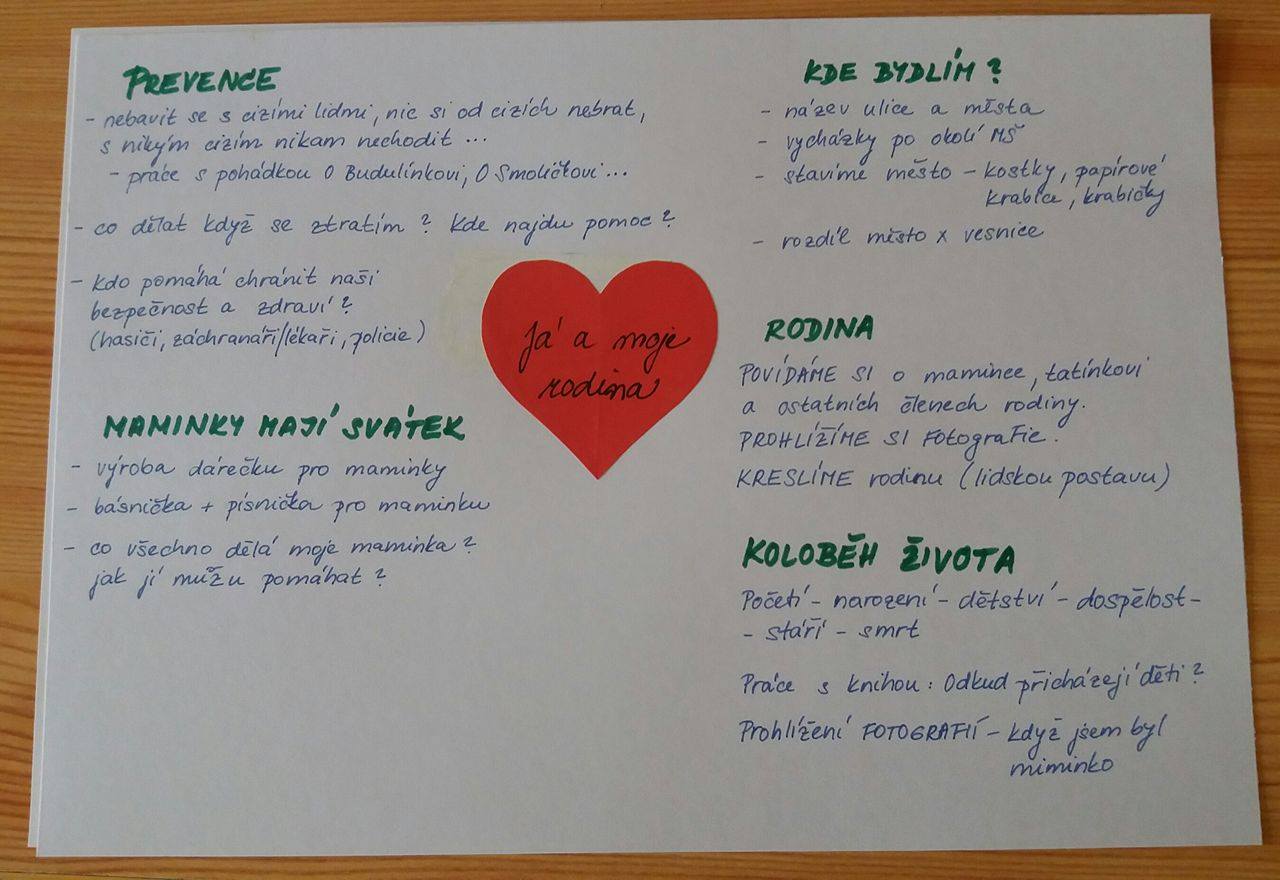 PREVENCE
- nebavit se s cizími lidmi, nic si od cizích nebrat,
s nikým cizím nikam nechodit ...
- práce s pohádkou O Budulínkovi, O Smolíčkovi...
- co dělat když se ztratím? Kde najdu pomoc?
- kdo pomáhá chránit naši
bezpečnost a zdraví?
(hasiči, záchranáři/lékaři, policie)
MAMINKY MAJÍ SVÁTEK
- výroba dárečku pro maminky
- básnička + písnička pro maminku
- co všechno dělá moje maminka?
jak jí můžu pomáhat?
Já a moje
rodina
KDE BYDLÍM?
- název ulice a města
- vycházky po okolí MŠ
- stavíme město - kostky, papírové
krabice, krabičky
- rozdíl město x vesnice
RODINA
POVÍDÁME SI o mamince, tatínkovi
a ostatních členech rodiny.
PROHLÍŽÍME SI Fotografie.
KRESLÍME rodinu (lidskou postavu)
KOLOBĚH ŽIVOTA
Početí - narození - dětství - dospělost -
- stáří - smrt
Práce s knihou: Odkud přicházejí děti?
Prohlížení FOTOGRAFIÍ - když jsem byl
miminko